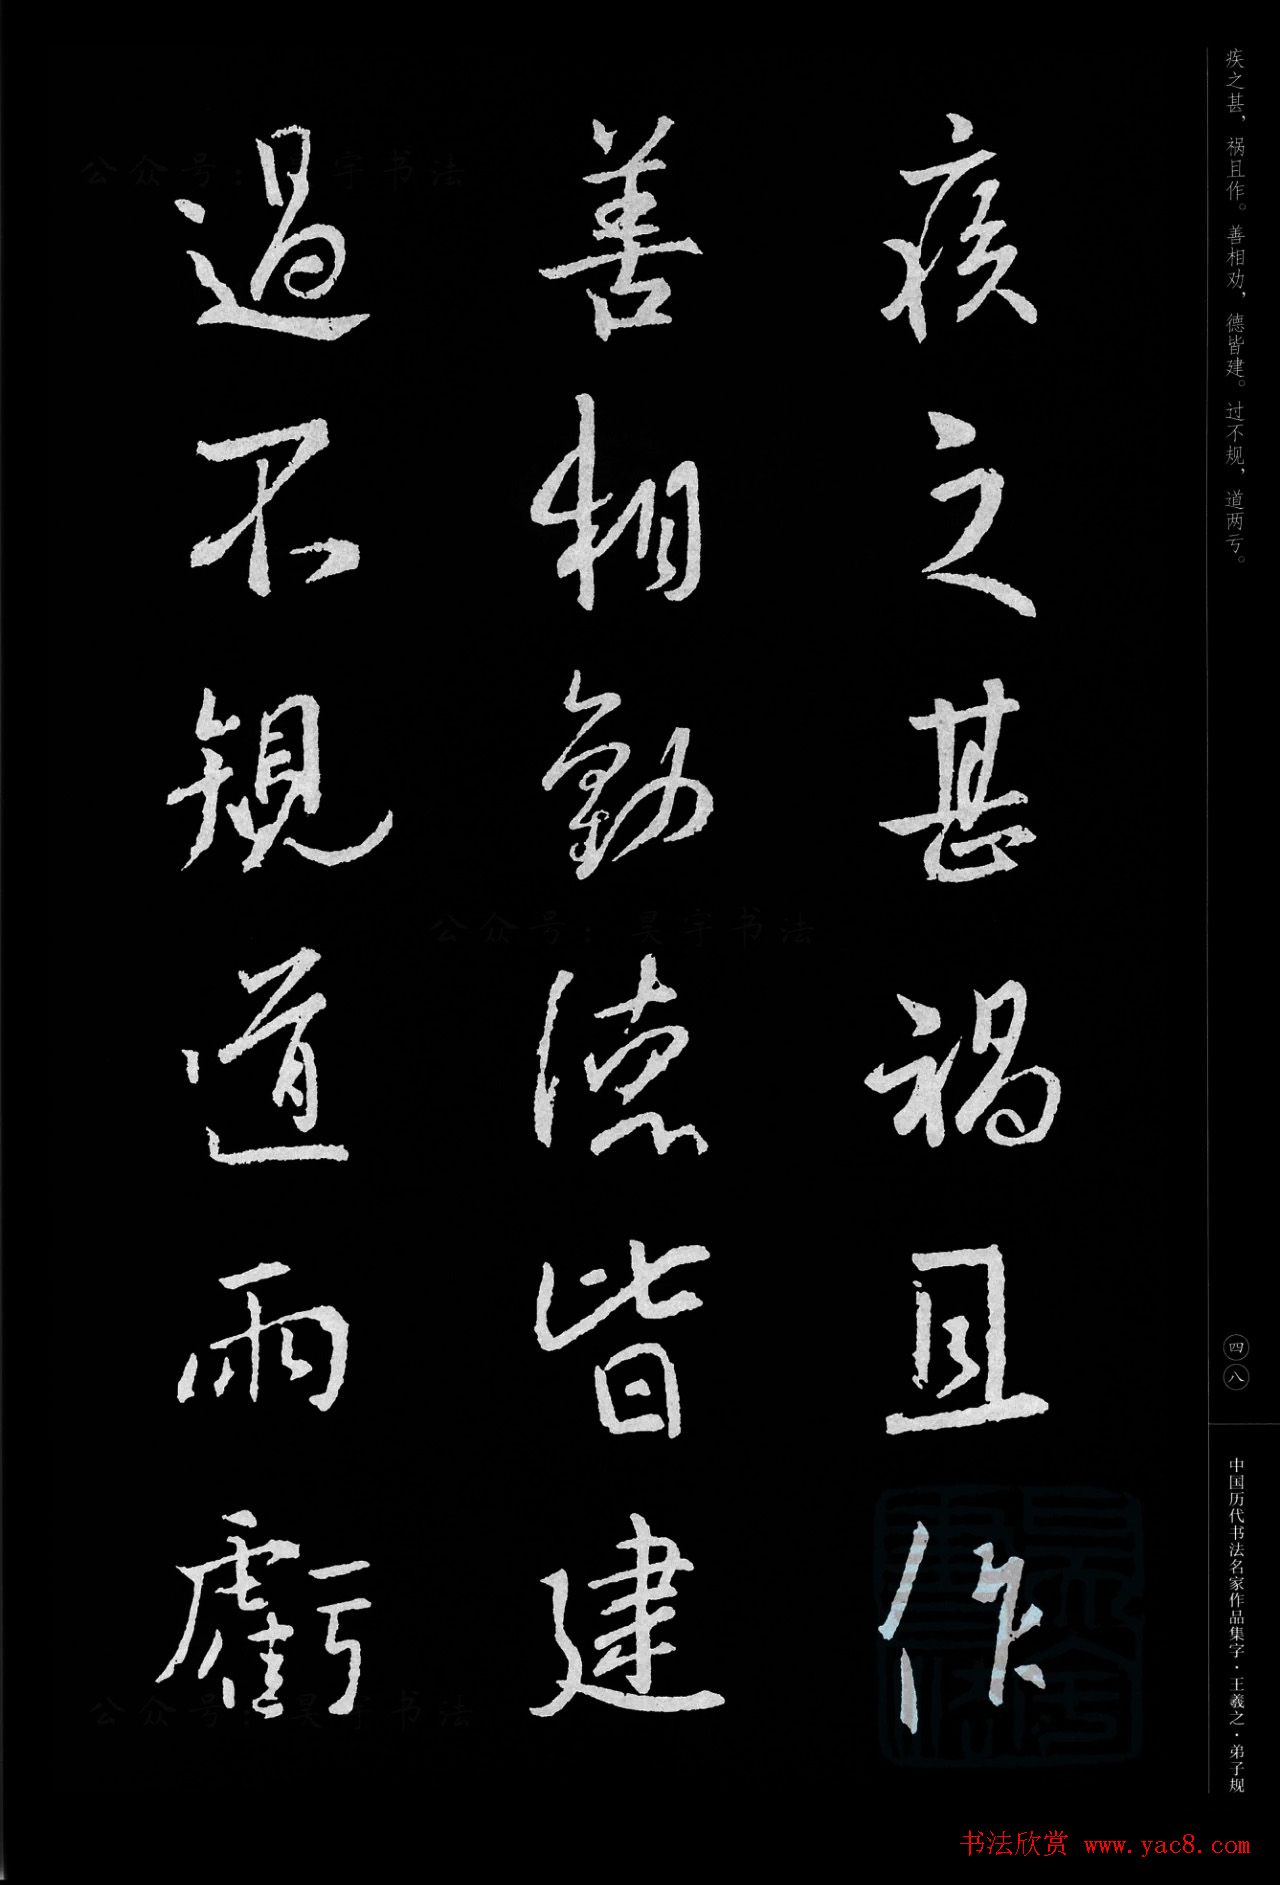 疾之甚，祸且作。善相劝，德皆建。过不规，道两亏。
疾之甚禍且作
善相勸德皆建
過不規道兩虧
四八
中国历代书法名家作品集字·王羲之·弟子规
公众号：昊宇书法
公众号：昊宇书法
公众号：昊宇书法
书法欣赏 www.yac8.com